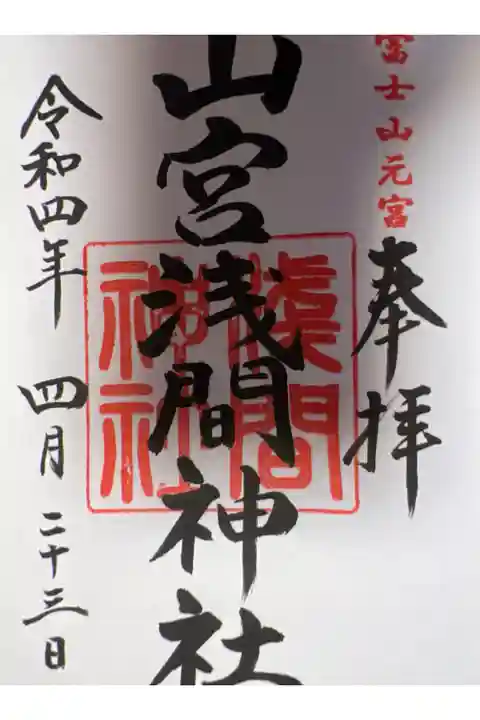 富士山元宮
奉拝
山宮浅間神社
浅間
神社
令和四年 四月 二十三日